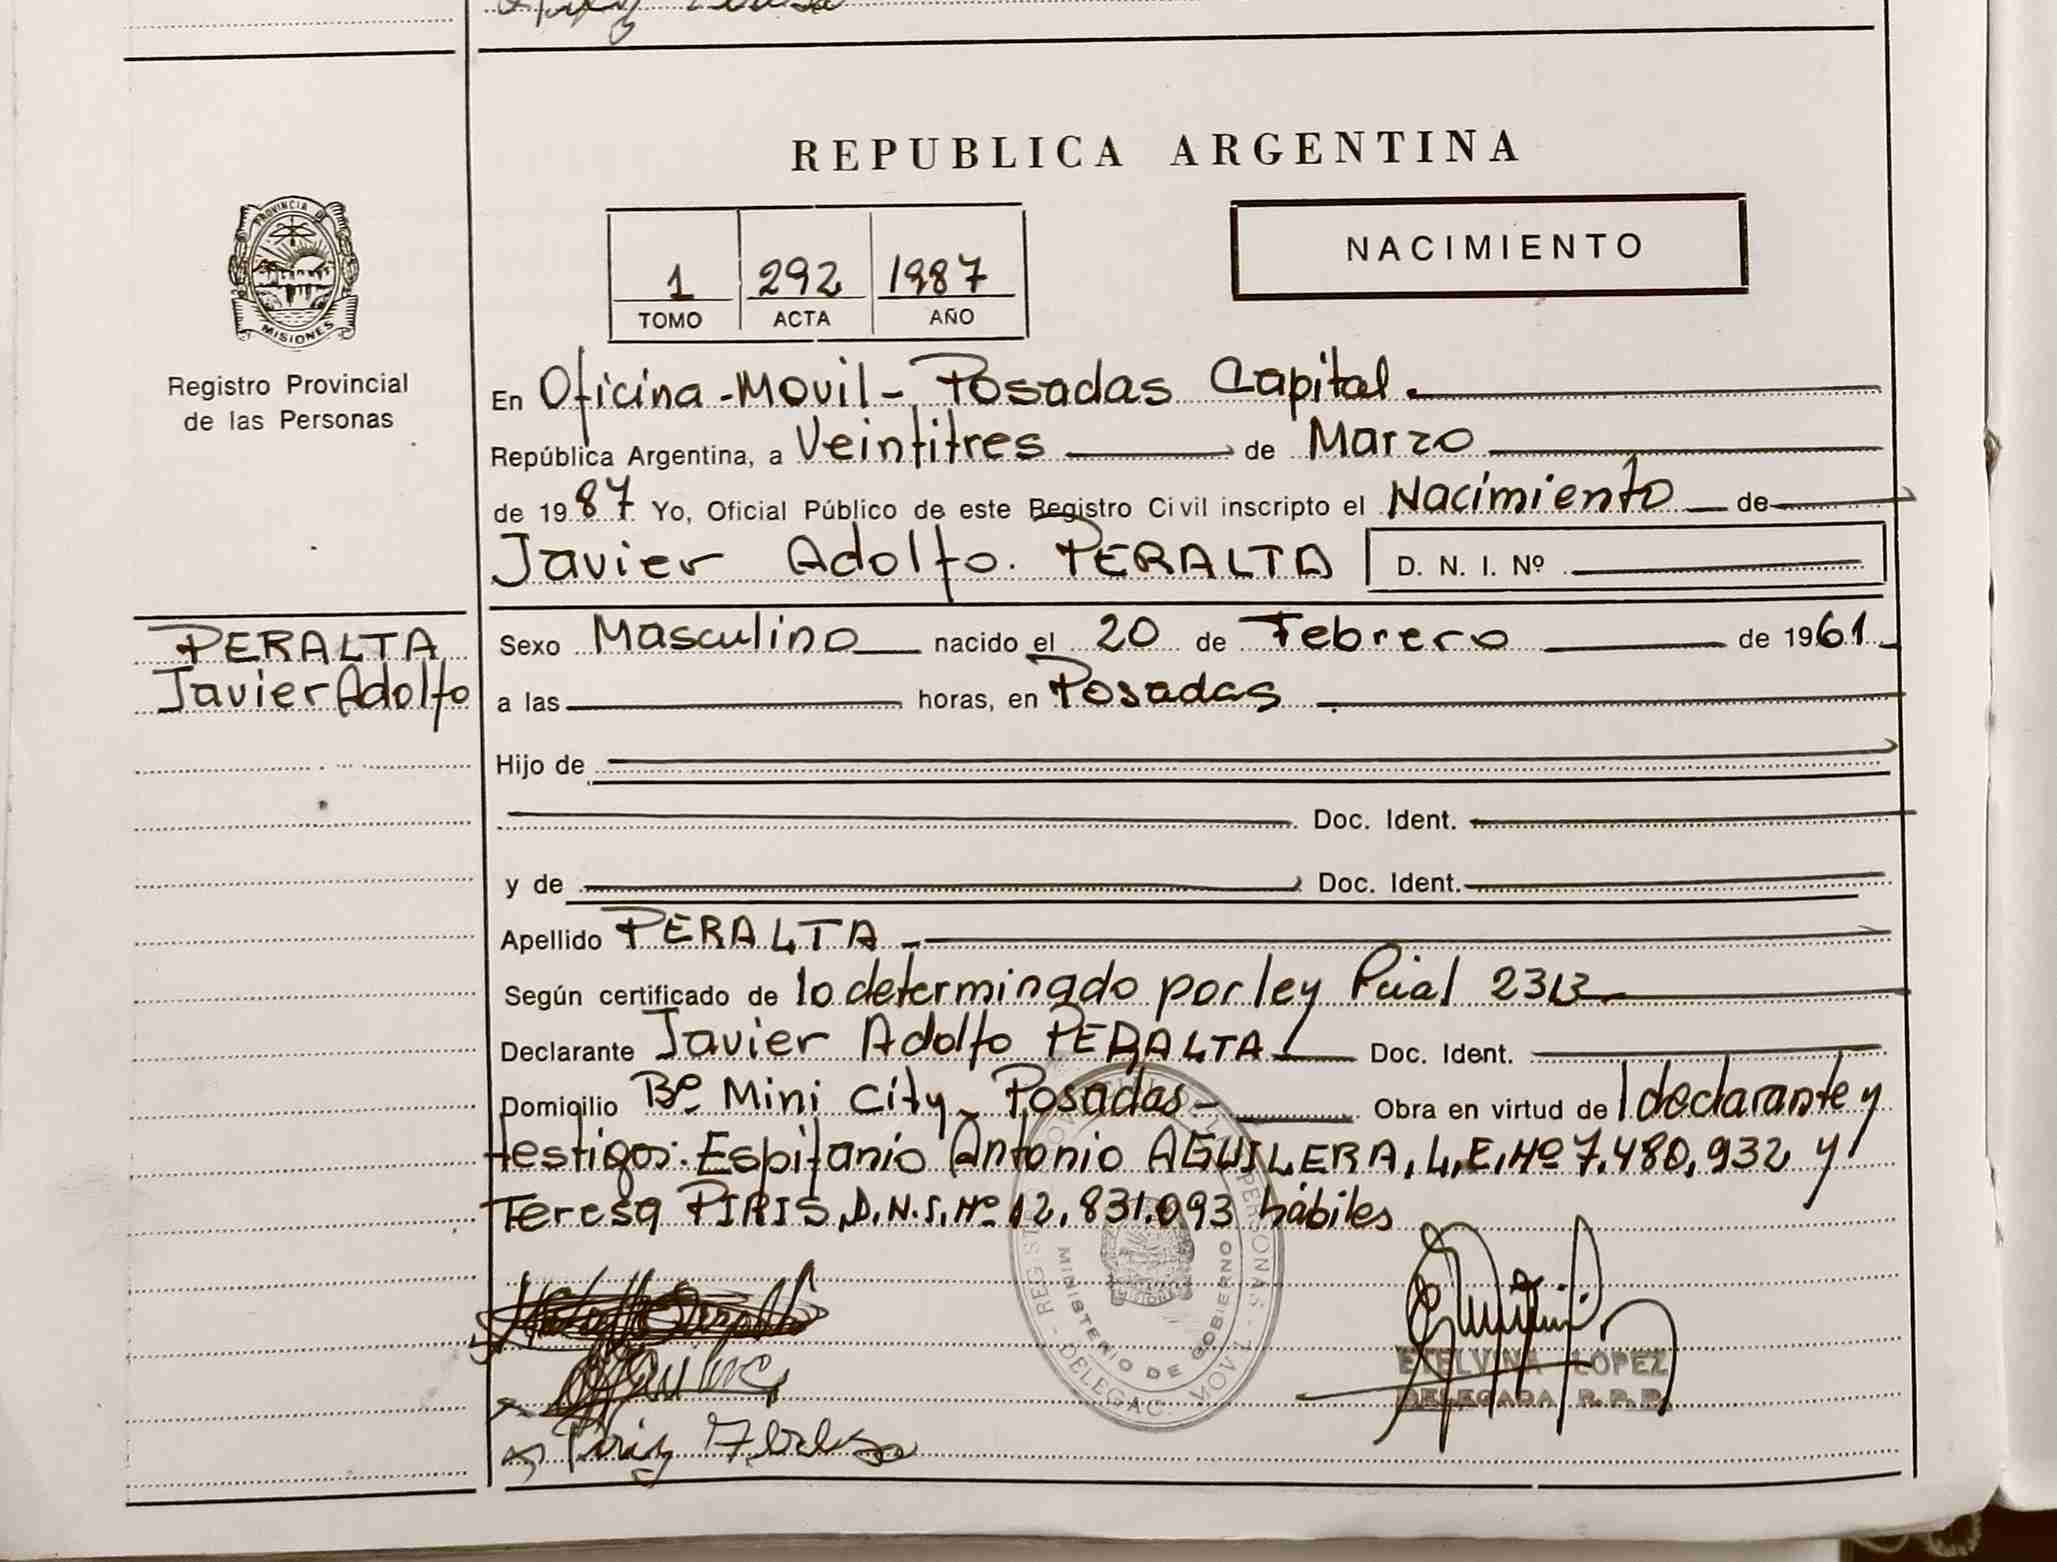 REPUBLICA ARGENTINA
PROVINCIA DE
MISIONES
Registro Provincial
de las Personas
1 292 1987
TOMO ACTA AÑO
NACIMIENTO
En Oficina-Movil- Posadas Capital.
República Argentina, a Veintitres de Marzo
de 1987 Yo, Oficial Público de este Registro Civil inscripto el Nacimiento de
Javier Adolfo. PERALTA D. N. I. Nº
PERALTA
Javier Adolfo
Sexo Masculino nacido el 20 de Febrero de 1961
a las horas, en Posadas.
Hijo de
Doc. Ident.
y de Doc. Ident.
Apellido PERALTA
Según certificado de lo determinado por ley Pcial
Declarante Javier Adolfo PERALTA Doc. Ident.
Domicilio Bº Mini City- Posadas- Obra en virtud de l declarante y
testigos: Espifanio Antonio AGUILERA, L.E.Nº 7.480.932 y
Teresa PIRIS, D.N.I.Nº 12.831.093 hábiles
MINISTERIO DE GOBIERNO
ETELVINA LOPEZ
DELEGADA R.P.P.